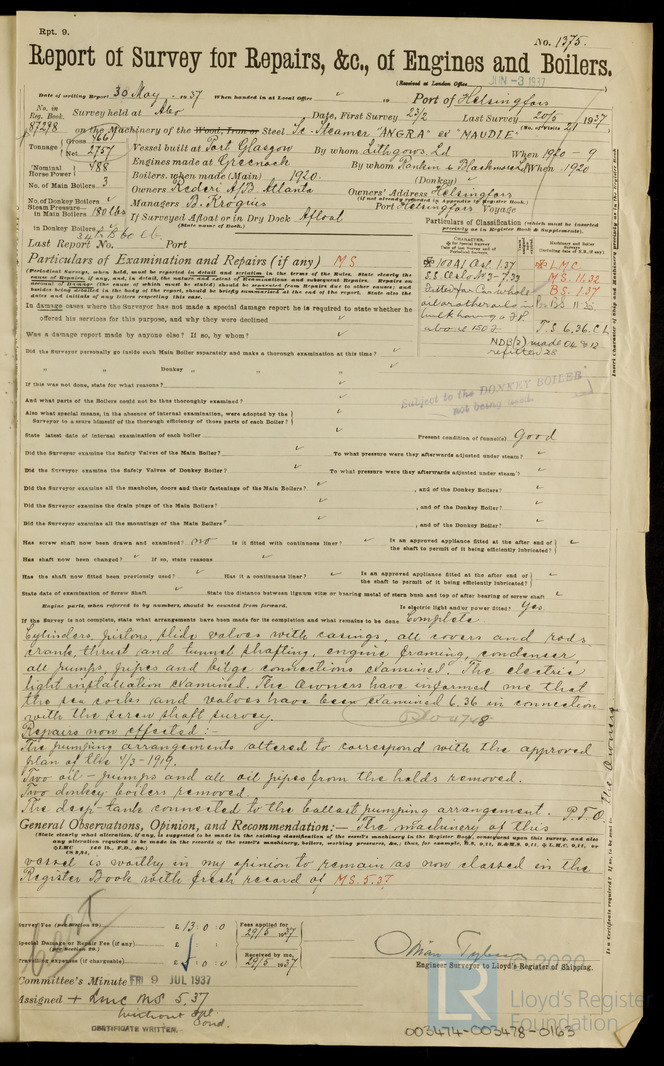 Rpt. 9.
No. 1375.
Report of Survey for Repairs, &c., of Engines and Boilers.
(Received at London Office JUN -3 1937)
Date of writing Report 30 May 1937 When handed in at Local Office Port of Helsingfors
No. in Reg. Book. Survey held at Abo Date, First Survey 23/2 Last Survey 20/5 1937
87298 on the Machinery of the Wood, Iron or Steel Sc. Steamer "ANGRA" ex "MAUDIE" (No. of Visits 21)
Tonnage Gross 4661 Net 2757 Vessel built at Port Glasgow By whom Lithgows Ld When 1920 - 9
Nominal Horse Power 488 Engines made at Greenock By whom Rankin & Blackmore Ld When 1920
No. of Main Boilers 3 Boilers, when made (Main) 1920 (Donkey)
Owners Rederi A/B Atlanta Owners' Address Helsingfors
(If not already recorded in Appendix to Register Book.)
No. of Donkey Boilers Managers B. Krogius Port Helsingfors Voyage
Steam Pressure in Main Boilers 180 lbs If Surveyed Afloat or in Dry Dock Afloat
(State name of Dock.)
in Donkey Boilers
Particulars of Classification (which must be inserted precisely as in the Register Book & Supplements).
Last Report No. Port
Particulars of Examination and Repairs (if any) MS
(Periodical Surveys, when held, must be reported in detail and seriatim in the terms of the Rules. State clearly the cause of Repairs, if any, and, in detail, the nature and extent of Examinations and subsequent Repairs. Repairs on account of Damage (the cause of which must be stated) should be separated from Repairs due to other causes; and besides being detailed in the body of the report, should be briefly summarized at the end of the report. State also the dates and initials of any letters respecting this case.
✠ 100A1 1.37
S.S. Oslo No 3 - 7.33
✠ LMC
MS. 11.32
BS. 1.37
above 150 F
T.S. 6.36. C.L.
NDB(2) made 04 & 12
refitted 28
In damage cases where the Surveyor has not made a special damage report he is required to state whether he offered his services for this purpose, and why they were declined
Was a damage report made by anyone else? If so, by whom?
Did the Surveyor personally go inside each Main Boiler separately and make a thorough examination at this time?
" " Donkey " " "
If this was not done, state for what reasons?
Subject to the DONKEY BOILER not being used
And what parts of the Boilers could not be thus thoroughly examined?
Also what special means, in the absence of internal examination, were adopted by the Surveyor to assure himself of the thorough efficiency of those parts of each Boiler?
State latest date of internal examination of each boiler Present condition of funnel(s) Good
Did the Surveyor examine the Safety Valves of the Main Boiler? To what pressure were they afterwards adjusted under steam?
Did the Surveyor examine the Safety Valves of Donkey Boiler? To what pressure were they afterwards adjusted under steam?
Did the Surveyor examine all the manholes, doors and their fastenings of the Main Boilers? , and of the Donkey Boilers?
Did the Surveyor examine the drain plugs of the Main Boilers? , and of the Donkey Boilers?
Did the Surveyor examine all the mountings of the Main Boilers? , and of the Donkey Boilers?
Has screw shaft now been drawn and examined? no Is it fitted with continuous liner? Is an approved appliance fitted at the after end of the shaft to permit of it being efficiently lubricated?
Has shaft now been changed? If so, state reasons
Has the shaft now fitted been previously used? Has it a continuous liner? Is an approved appliance fitted at the after end of the shaft to permit of it being efficiently lubricated?
State date of examination of Screw Shaft State the distance between lignum vitæ or bearing metal of stern bush and top of after bearing of screw shaft
Engine parts, when referred to by numbers, should be counted from forward. Is electric light and/or power fitted? Yes
If the Survey is not complete, state what arrangements have been made for its completion and what remains to be done Complete
Cylinders, pistons, slide valves with casings, all covers and rods
crank, thrust and tunnel shafting, engine framing, condenser,
all pumps, pipes and bilge connections examined. The electric
light installation examined. The Owners have informed me that
the sea cocks and valves have been examined 6.36 in connection
with the screw shaft survey.
Repairs now effected:-
The pumping arrangements altered to correspond with the approved
plan of the 4/3-1919.
Two oil-pumps and all oil pipes from the holds removed.
Two donkey boilers removed.
The deep-tank connected to the ballast pumping arrangement. P.T.O.
General Observations, Opinion, and Recommendation:— The machinery of this
(State clearly what alteration, if any, is suggested to be made in the existing classification of the vessel's machinery in the Register Book, consequent upon this survey, and also any alteration required to be made in the records of the vessel's machinery, boilers, working pressures, &c.; thus, for example,
vessel is worthy in my opinion to remain as now classed in the
Register Book with fresh record of MS. 5.37
Survey Fee (per Section 29) £ 13 : 0 : 0 Fees applied for 29/5 1937
Special Damage or Repair Fee (if any) (per Section 29.) £
Travelling expenses (if chargeable) Received by me, 29/5 1937
Engineer Surveyor to Lloyd's Register of Shipping.
Committee's Minute FRI 9 JUL 1937
Assigned + LMC MS 5.37
without
CERTIFICATE WRITTEN.
LR
2020
Lloyd's Register
Foundation
003474-003478-0163